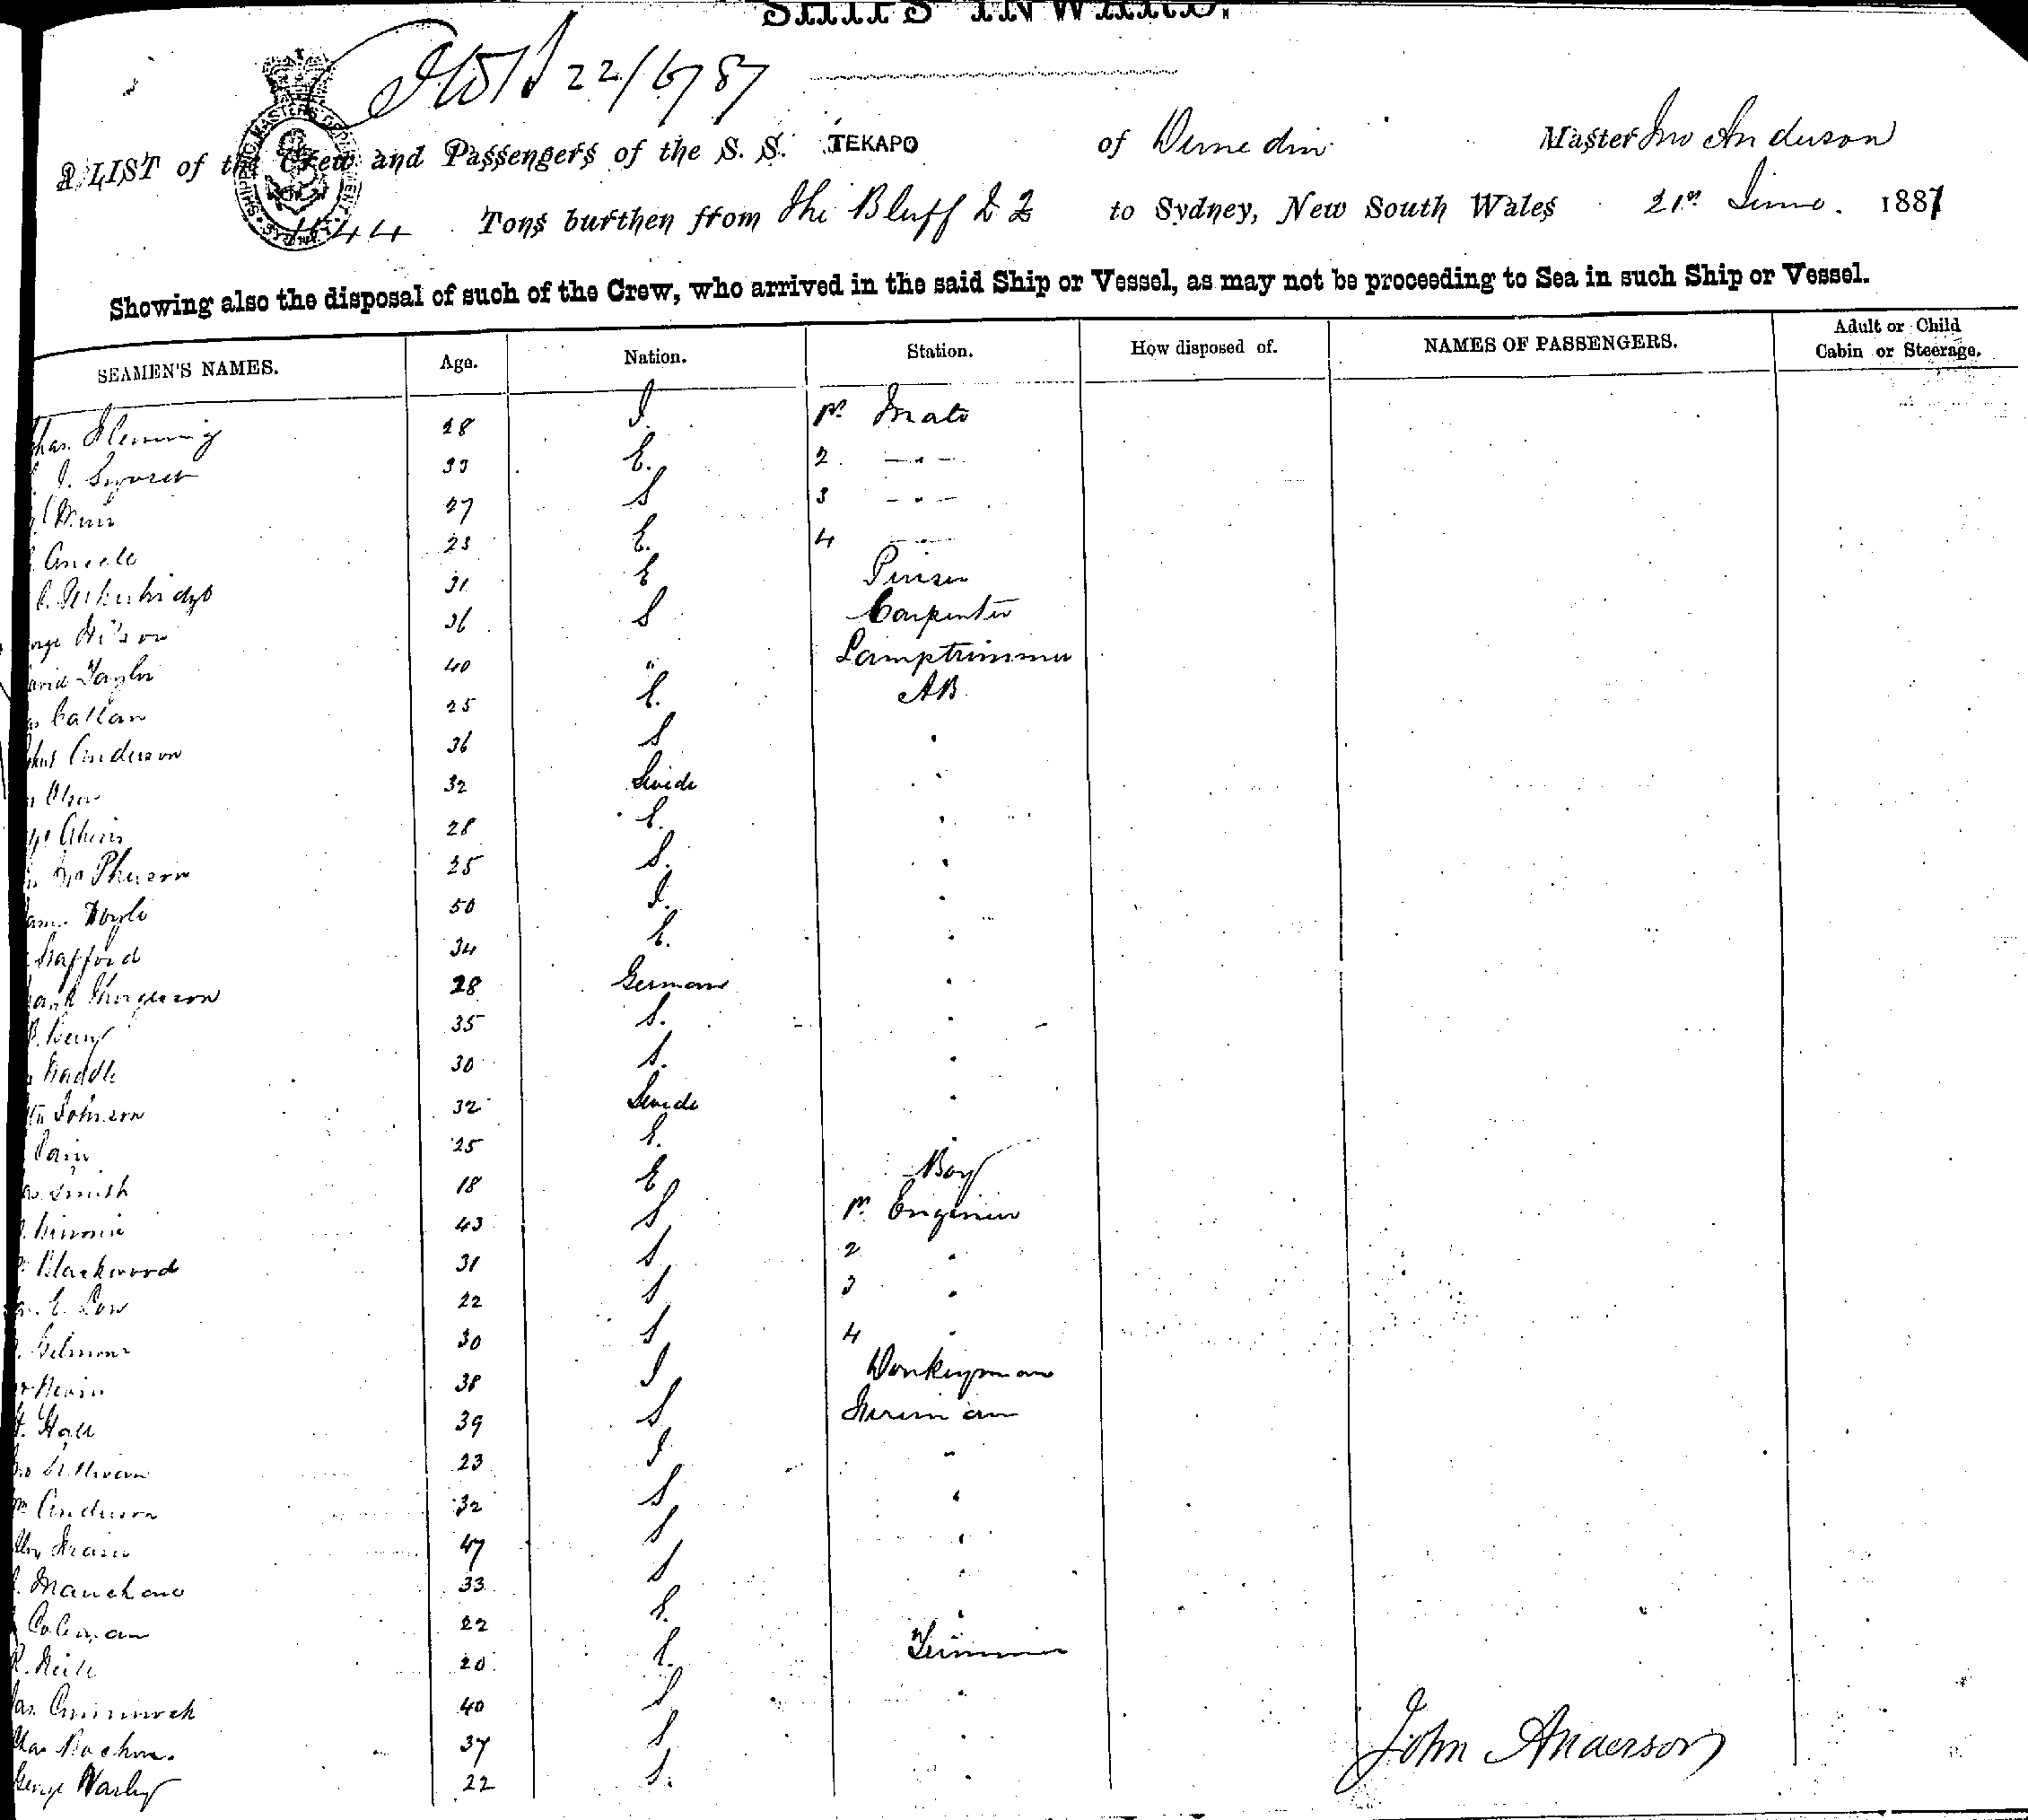 SHIPS INWARD.
22/6/87
A LIST of the Crew and Passengers of the S. S. TEKAPO of Dunedin Master Jno Anderson
1644 Tons burthen from The Bluff N Z to Sydney, New South Wales 21st June 1887
Showing also the disposal of such of the Crew, who arrived in the said Ship or Vessel, as may not be proceeding to Sea in such Ship or Vessel.
SEAMEN'S NAMES. Age. Nation. Station. How disposed of. NAMES OF PASSENGERS. Adult or Child Cabin or Steerage.
has. Fleming 28 I. 1st Mate
33 E. 2 - " -
Muir 27 S 3 - " -
23 E. 4 - " -
31 E Purser
orge Wilson 36 S Carpenter
avid Taylor 40 " Lamptrimmer
Callan 25 E. A B
Anderson 36 S "
Olsen 32 Swede "
28 E. "
McPherson 25 S. "
ames Doyle 50 I. "
34 E. "
rank 28 German "
35 S. "
30 S. "
Johnson 32 Swede "
25 E. "
Smith 18 E Boy
43 S 1st Engineer
Blackwood 31 S 2 "
E. Low 22 S 3 "
Gilmour 30 S 4 "
Nevin 38 I Donkeyman
H. Hall 39 S Fireman
Sullivan 23 I "
Wm Anderson 32 S "
47 S "
33 S "
Coleman 22 E. "
R. Neill 20 E. Trimmer
as. 40 S "
Chas 37 S "
George 22 S. "
John Anderson